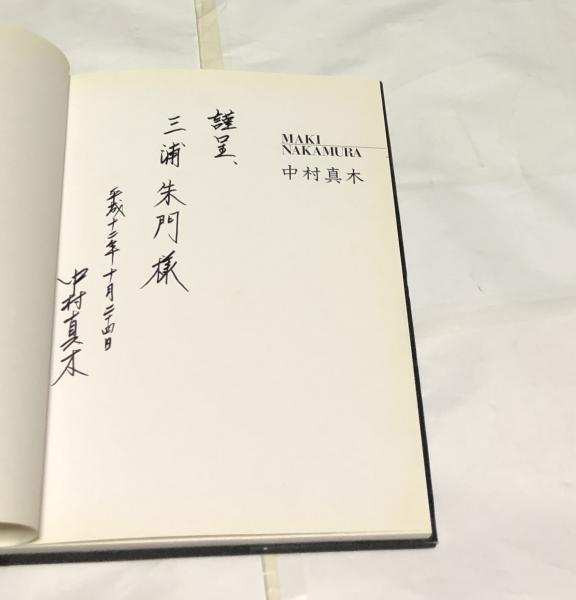 MAKI
NAKAMURA
中村真木
謹呈、
三浦朱門様
平成十二年十月二十四日
中村真木